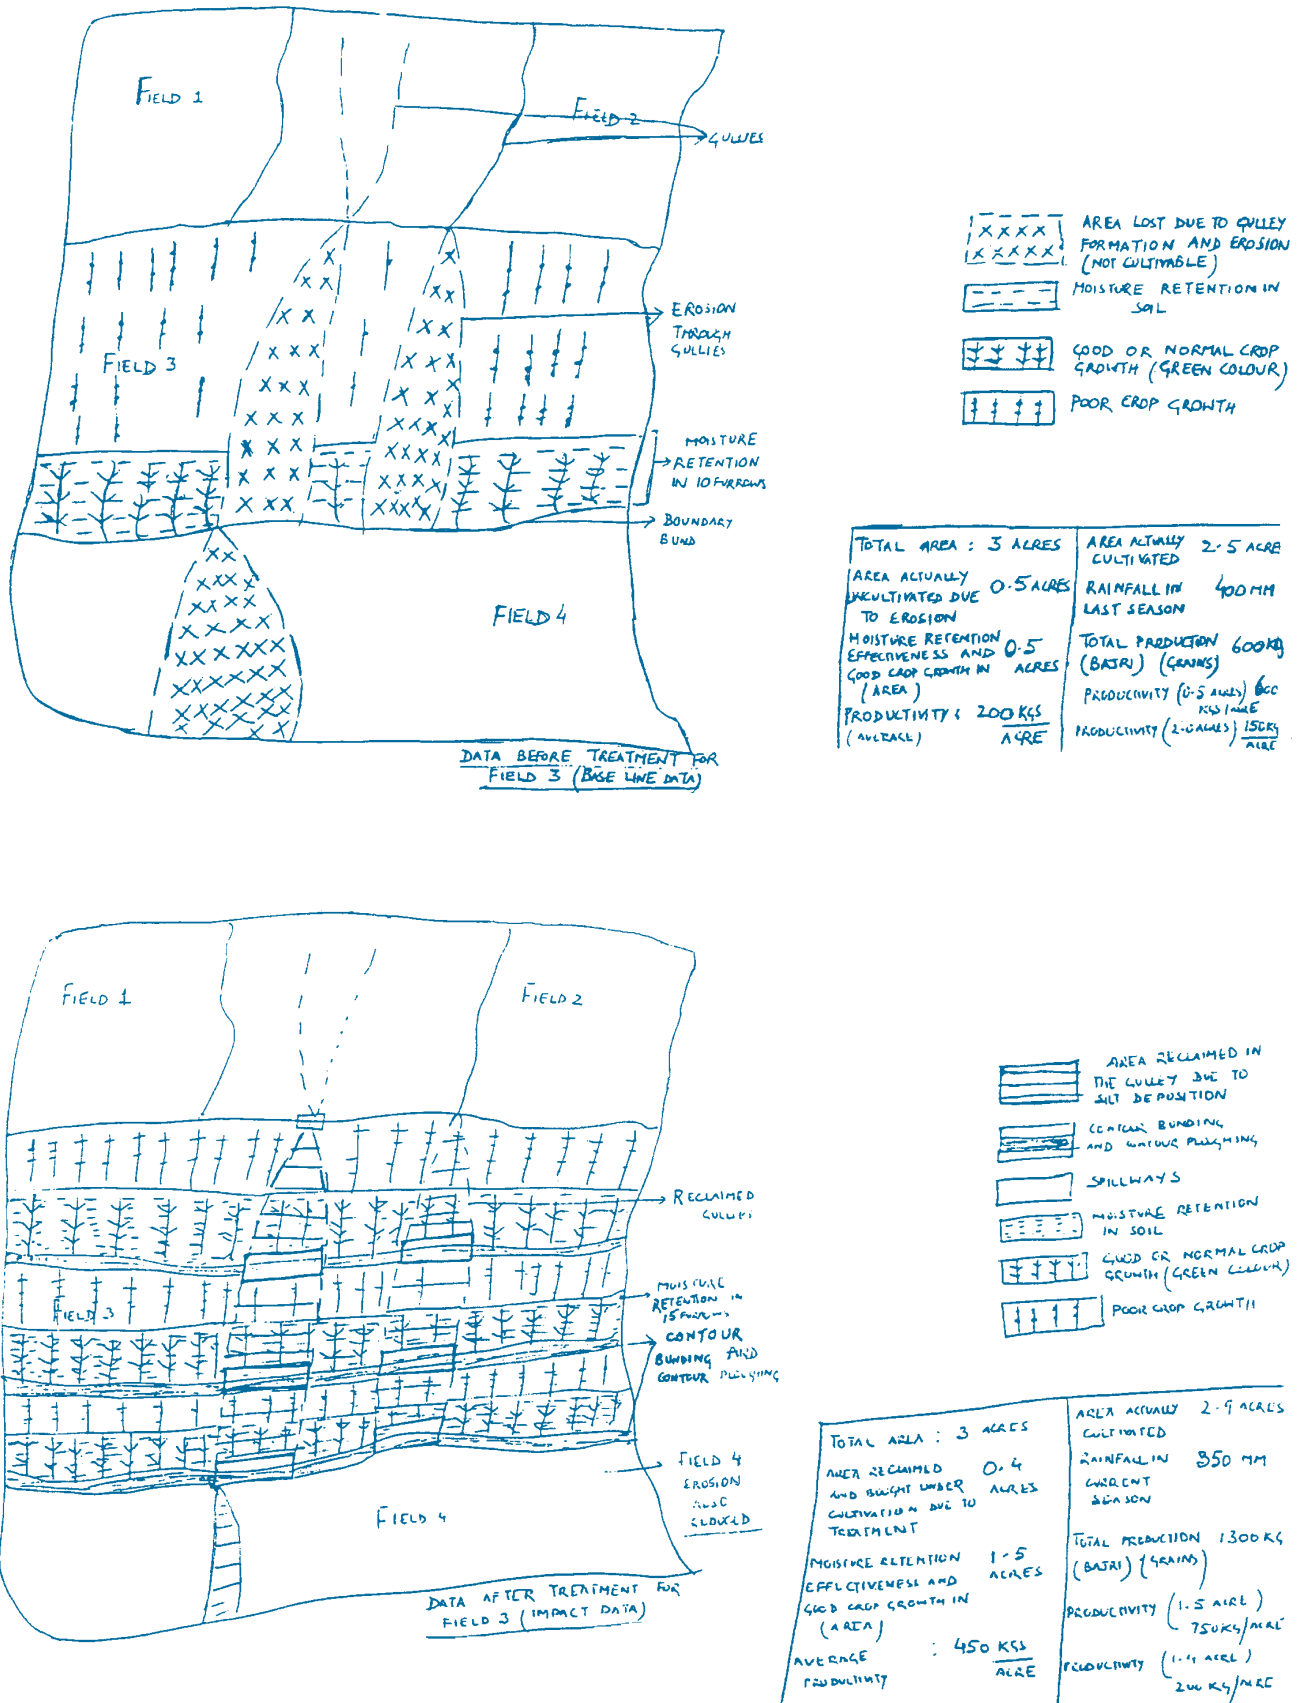 FIELD 1
FIELD 2
GULLIES
FIELD 3
EROSION
THROUGH
GULLIES
MOISTURE
RETENTION
IN 10 FURROWS
BOUNDARY
BUND
FIELD 4
DATA BEFORE TREATMENT FOR
FIELD 3 (BASE LINE DATA)
AREA LOST DUE TO GULLEY
FORMATION AND EROSION
(NOT CULTIVABLE)
MOISTURE RETENTION IN
SOIL
GOOD OR NORMAL CROP
GROWTH (GREEN COLOUR)
POOR CROP GROWTH
TOTAL AREA : 3 ACRES
AREA ACTUALLY
UNCULTIVATED DUE 0.5 ACRES
TO EROSION
MOISTURE RETENTION
EFFECTIVENESS AND 0.5
GOOD CROP GROWTH IN ACRES
(AREA)
PRODUCTIVITY : 200 KGS
(AVERAGE) ACRE
AREA ACTUALLY 2.5 ACRE
CULTIVATED
RAINFALL IN 400 MM
LAST SEASON
TOTAL PRODUCTION 600 KG
(BAJRI) (GRAINS)
PRODUCTIVITY (0.5 ACRES) 600
KGS/ACRE
PRODUCTIVITY (2.0 ACRES) 150 KG
ACRE
FIELD 1
FIELD 2
RECLAIMED
GULLIES
FIELD 3
MOISTURE
RETENTION IN
15 FURROWS
CONTOUR
BUNDING AND
CONTOUR PLOUGHING
FIELD 4
EROSION
ALSO
REDUCED
FIELD 4
DATA AFTER TREATMENT FOR
FIELD 3 (IMPACT DATA)
AREA RECLAIMED IN
THE GULLEY DUE TO
SILT DEPOSITION
CONTOUR BUNDING
AND CONTOUR PLOUGHING
SPILLWAYS
MOISTURE RETENTION
IN SOIL
GOOD OR NORMAL CROP
GROWTH (GREEN COLOUR)
POOR CROP GROWTH
TOTAL AREA : 3 ACRES
AREA RECLAIMED 0.4
AND BOUGHT UNDER ACRES
CULTIVATION DUE TO
TREATMENT
MOISTURE RETENTION 1.5
EFFECTIVENESS AND ACRES
GOOD CROP GROWTH IN
(AREA)
AVERAGE : 450 KGS
PRODUCTIVITY ACRE
AREA ACTUALLY 2.9 ACRES
CULTIVATED
RAINFALL IN 350 MM
CURRENT
SEASON
TOTAL PRODUCTION 1300 KG
(BAJRI) (GRAINS)
PRODUCTIVITY (1.5 ACRE)
750 KG/ACRE
PRODUCTIVITY (1.4 ACRE)
200 KG/ACRE